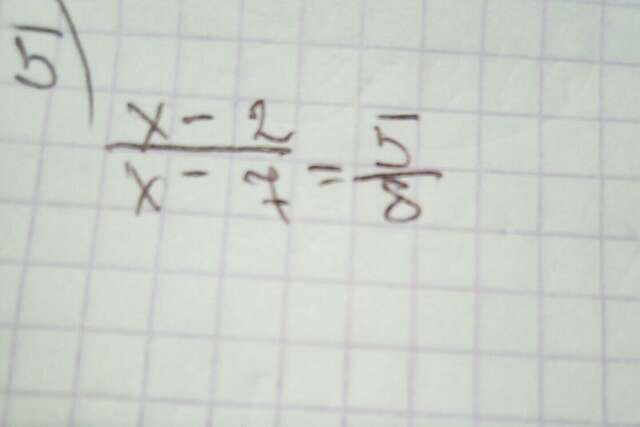 5)
x - 2
x - 7 = 5
8